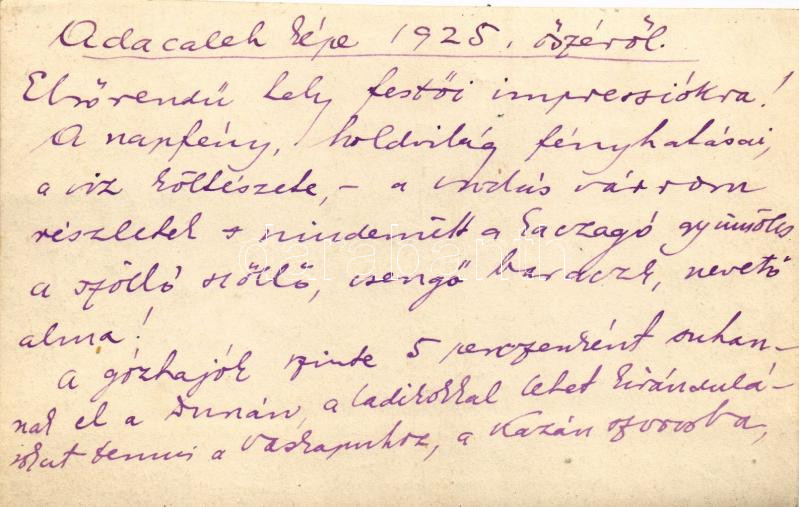 Adacaleh képe 1925. őszéről.
Elsőrendű hely festői impressiókra!
A napfény, holdvilág fényhatásai,
a viz költészete, – a vadás várrom
részletek + mindenütt a kaczagó gyümölcs
a szőllő szőllő, csengő baraczk, nevető
alma!
A gőzhajók szinte 5 perczenként suhan–
nak el a Dunán, a ladikokkal lehet kirándulá–
sokat tenni a Vaskapuhoz, a Kazán szorosba,
darabanth